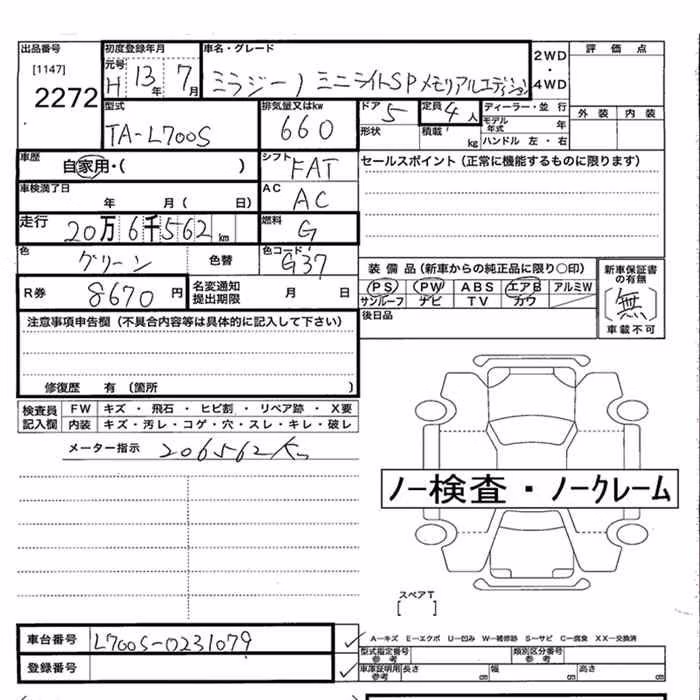 出品番号 初度登録年月 車名・グレード 2WD 評価点
[1147] 元号 H 13年 7月 ミラジーノ ミニライトSPメモリアルエディション ・
2272 4WD
型式 排気量又はkw ドア 5 定員 4人 ディーラー・並 行 外装 内装
TA-L700S 660 形状 積載 kg モデル年式 年
ハンドル 左・右
車歴 自家用・( ) シフト FAT セールスポイント (正常に機能するものに限ります)
車検満了日 年 月( 日) AC AC
走行 20万6千562km 燃料 G
色 グリーン 色替 色コード G37
装備品(新車からの純正品に限り○印) 新車保証書の有無
R券 8670円 名変通知提出期限 月 日 PS PW ABS エアB アルミW 無
サンルーフ ナビ TV カワ 車載不可
注意事項申告欄 (不具合内容等は具体的に記入して下さい) 後日品
修復歴 有 (箇所 )
検査員記入欄 FW キズ ・ 飛石 ・ ヒビ割 ・ リペア跡 ・ X要
内装 キズ・汚レ・コゲ・穴・スレ・キレ・破レ
メーター指示 206562Km
ノー検査・ノークレーム
スペアT
[ ]
車台番号 L700S-0231079 A―キズ E―エクボ U―凹み W―補修跡 S―サビ C―腐食 XX―交換済
型式指定番号 参考 類別区分番号 参考
登録番号 車庫証明用 参考 長さ cm 幅 cm 高さ cm